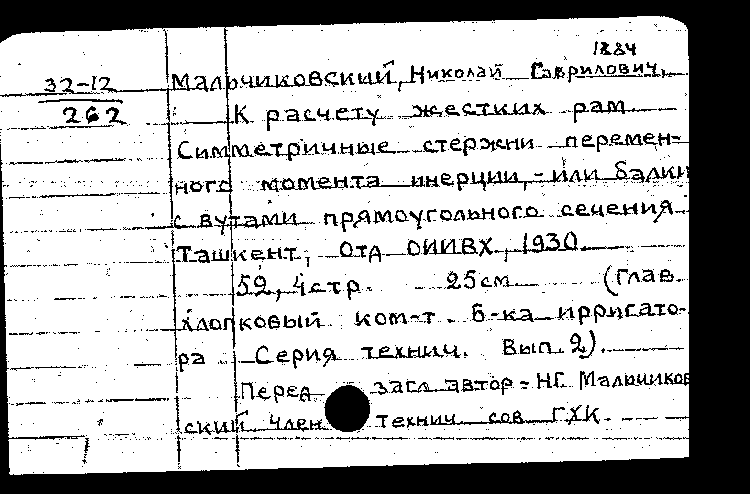 1884
32-12
262
Мальчиковский, Николай Гаврилович.
К расчету жестких рам.
Симметричные стержни перемен-
ного момента инерции, - или балки
с вутами прямоугольного сечения
Ташкент, Отд ОИИВХ, 1930.
52, 4 стр. 25 см (Глав.
хлопковый ком-т. Б-ка ирригато-
ра Серия технич. Вып. 2).
Перед загл автор = НГ. Мальчиков
ский член технич сов ГХК.